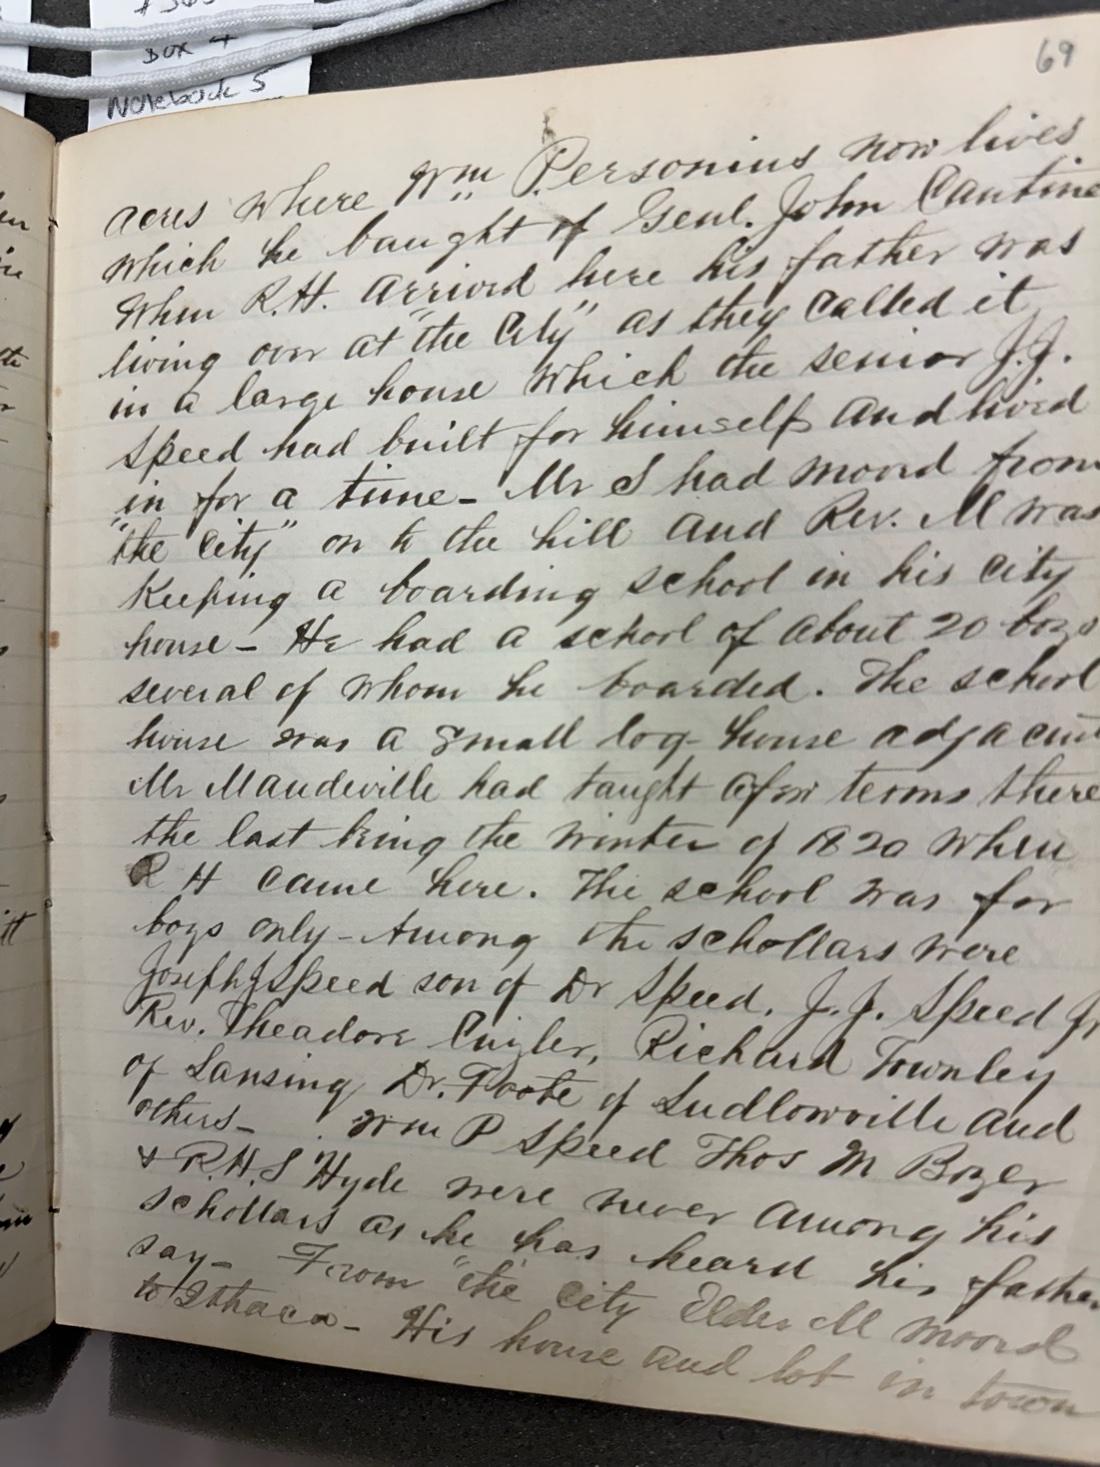 Box 4
Notebook 5
69
acres where Wm Personius now lives
which he baught of Genl. John Cantine
When R.H. arrived here his father was
living over at "the City" as they called it
in a large house which the senior J.J.
Speed had built for himself and lived
in for a time - Mr S had moved from
"the City" on to the hill and Rev. M was
Keeping a boarding school in his city
house - He had a school of about 20 boys
several of whom he boarded. The school
house was a small log-house adjacent
Mr Mandeville had taught a few terms there
the last being the winter of 1820 when
R H came here. The school was for
boys only - Among the schollars were
Joseph J Speed son of Dr Speed. J. J. Speed Jr
Rev. Theadore Cuyler, Richard Townley
of Lansing Dr. Foote of Ludlowville and
others - Wm P Speed Thos M Bozer
& R.H.S Hyde were never among his
schollars as he has heard his father
say - From "the city Elder M moved
to Ithaca - His house and lot in town